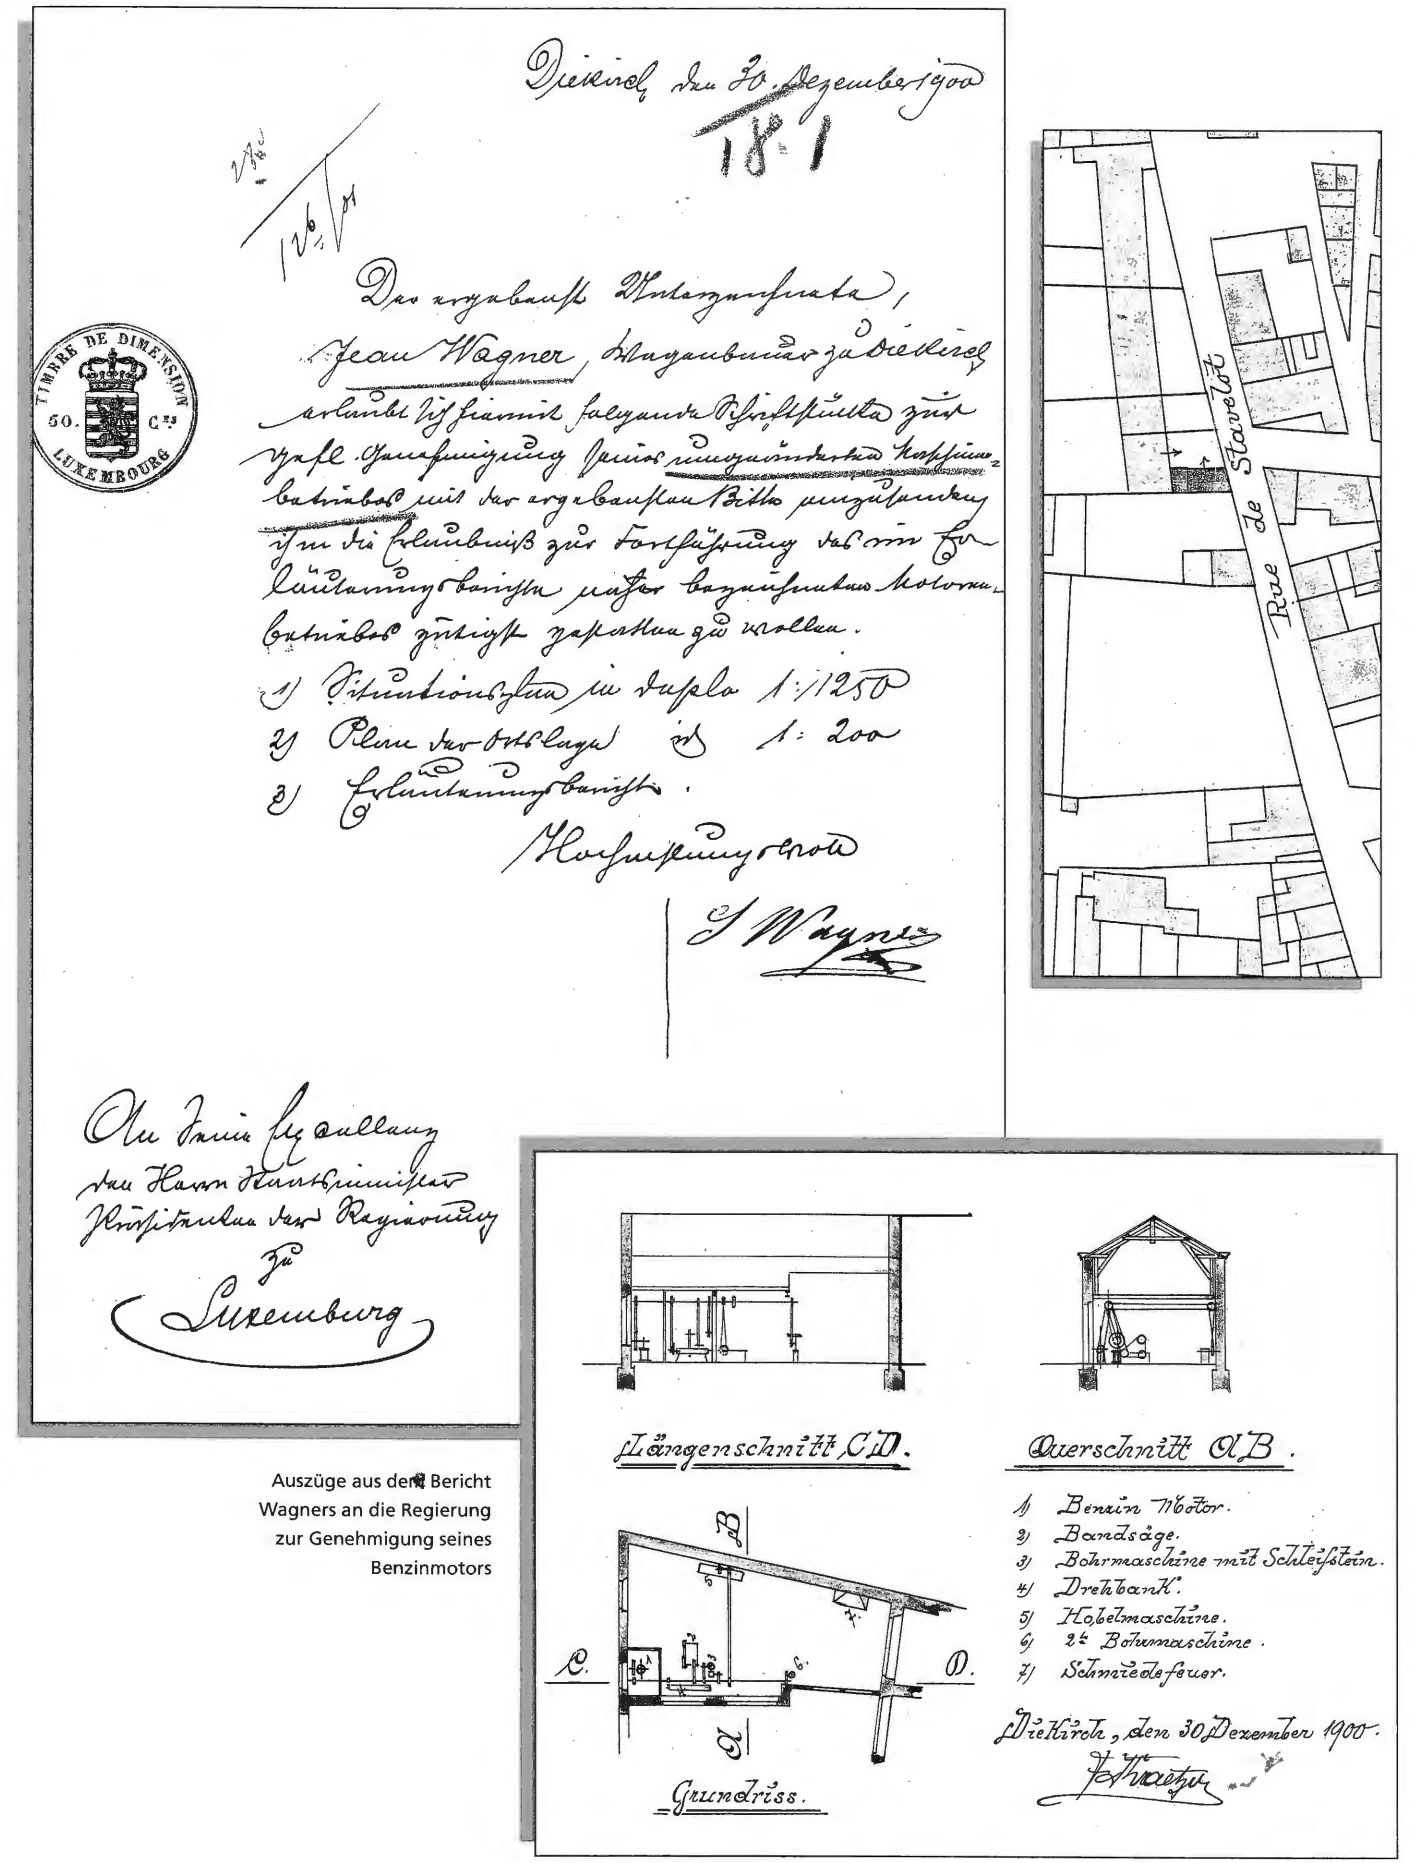 Diekirch, den 30. Dezember 1900
18.1
126/01
Der ergebenst Unterzeichnete,
Jean Wagner, Wagenbauer zu Diekirch
erlaubt sich hiermit folgende Schriftstücke zur
gefl. Genehmigung seines umgeänderten Maschinen-
betriebes mit der ergebensten Bitte einzusenden,
ihm die Erlaubniß zur Fortführung des im Er-
läuterungsberichte näher bezeichneten Motoren-
betriebes gütigst gestatten zu wollen.
1) Situationsplan in duplo 1:1250
2) Plan der Ortslage id 1:200
3) Erläuterungsbericht.
Hochachtungsvoll
J Wagner
TIMBRE DE DIMENSION
50. CES
LUXEMBOURG
An Seine Excellenz
den Herrn Staatsminister
Präsidenten der Regierung
zu
Luxemburg
Rue de Stavelot
Auszüge aus dem Bericht
Wagners an die Regierung
zur Genehmigung seines
Benzinmotors
Längenschnitt CD.
Querschnitt AB.
1) Benzin Motor.
2) Bandsäge.
3) Bohrmaschine mit Schleifstein.
4) Drehbank.
5) Hobelmaschine.
6) 2te Bohrmaschine.
7) Schmiedefeuer.
Diekirch, den 30 Dezember 1900.
B
5
7.
C.
1
2
3
4
6.
D.
A
Grundriss.